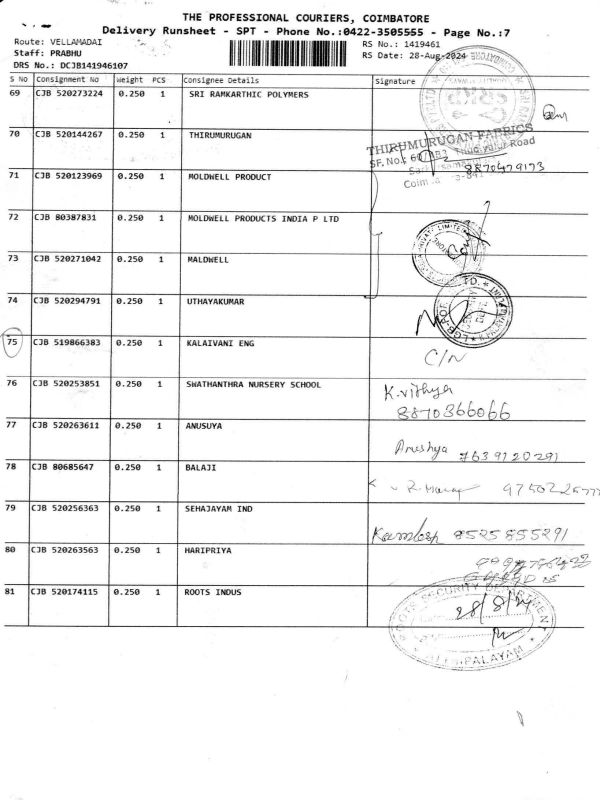 THE PROFESSIONAL COURIERS, COIMBATORE
Delivery Runsheet - SPT - Phone No.:0422-3505555 - Page No.:7
Route: VELLAMADAI
RS No.: 1419461
Staff: PRABHU
RS Date: 28-Aug-2024
DRS No.: DCJB141946107
S No Consignment No Weight PCS Consignee Details Signature
69 CJB 520273224 0.250 1 SRI RAMKARTHIC POLYMERS
70 CJB 520144267 0.250 1 THIRUMURUGAN
THIRUMURUGAN FABRICS
Road
8870479173
71 CJB 520123969 0.250 1 MOLDWELL PRODUCT
72 CJB 80387831 0.250 1 MOLDWELL PRODUCTS INDIA P LTD
73 CJB 520271042 0.250 1 MALDWELL
74 CJB 520294791 0.250 1 UTHAYAKUMAR
75 CJB 519866383 0.250 1 KALAIVANI ENG
C/N
76 CJB 520253851 0.250 1 SWATHANTHRA NURSERY SCHOOL
K.vithya
8870366066
77 CJB 520263611 0.250 1 ANUSUYA
Anushya 7639120291
78 CJB 80685647 0.250 1 BALAJI
79 CJB 520256363 0.250 1 SEHAJAYAM IND
Kamlesh 8525855291
80 CJB 520263563 0.250 1 HARIPRIYA
81 CJB 520174115 0.250 1 ROOTS INDUS
ROOTS SECURITY DEPARTMENT
28/8/24